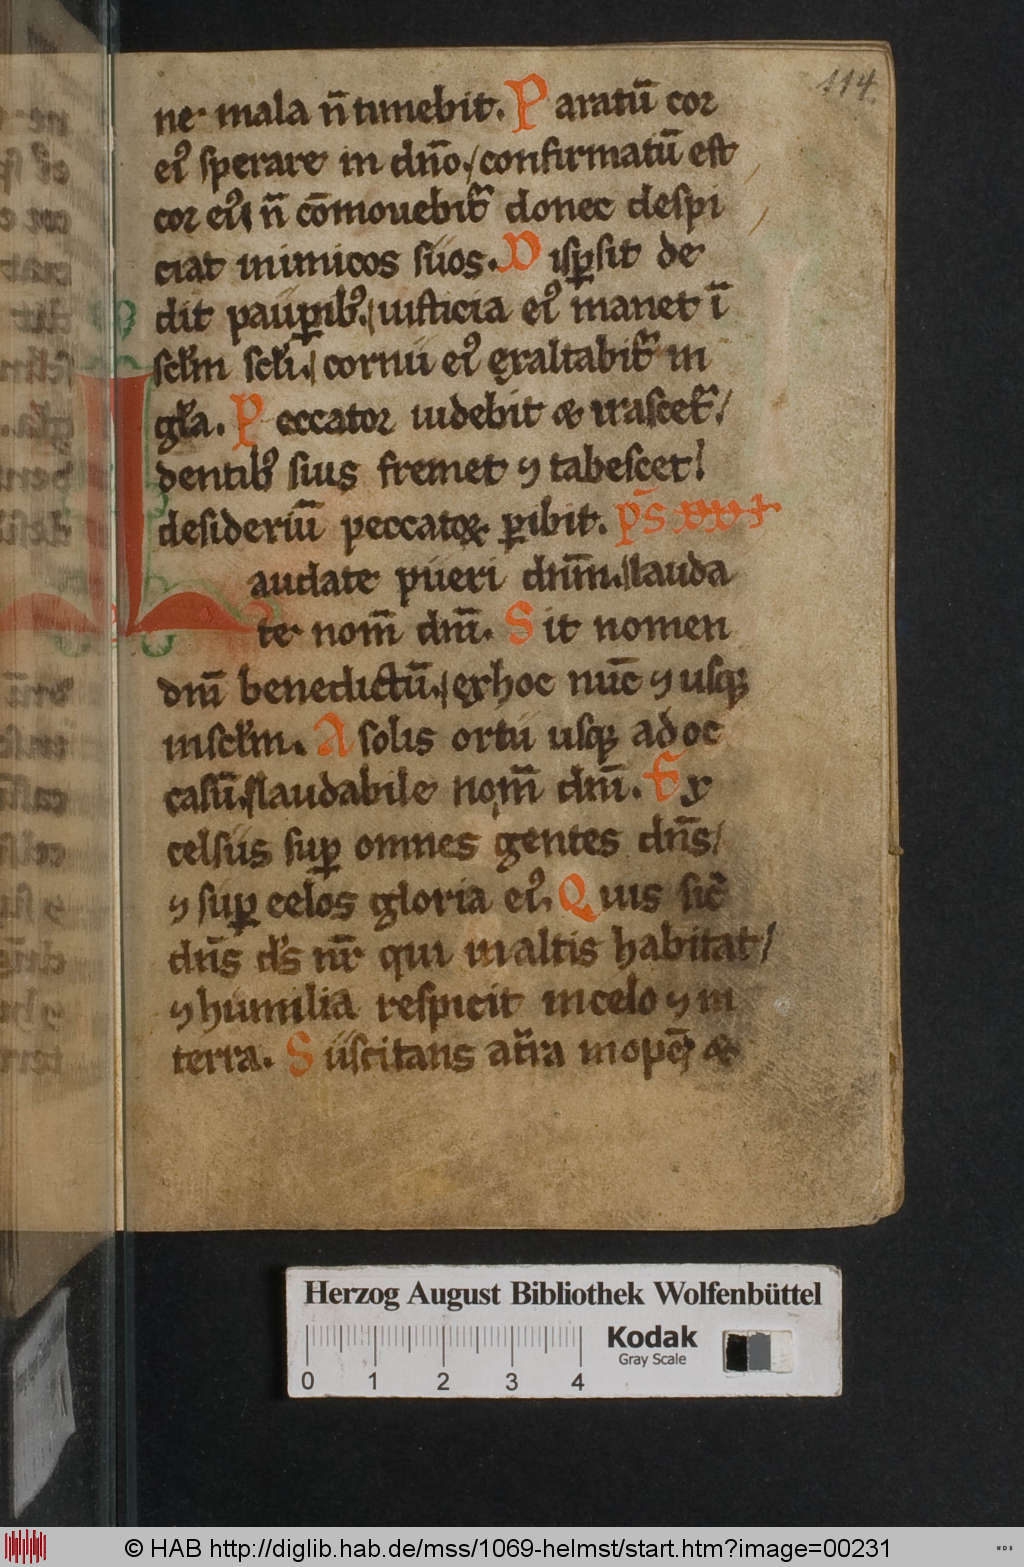 114.
ne mala n̄ timebit. Paratū cor
eiꝰ sperare in dn̄o./ confirmatū est
cor eiꝰ n̄ cōmouebit᷑ donec despi
ciat inimicos suos. Disꝑsit de
dit pauꝑibꝰ./ iusticia eiꝰ manet ī
scl̄m scl̄i./ cornu eiꝰ exaltabit᷑ in
gl̄a. Peccator uidebit & irascet᷑/
dentibꝰ suis fremet ꝯ tabescet/
desideriū peccatoꝝ ꝑibit. ps̄
Laudate pueri dnm̄./ lauda
te nom̄ dnī. Sit nomen
dnī benedictū./ exhoc nūc ꝯ usqꝫ
inscl̄m. A solis ortu usqꝫ adoc
casū./ laudabile nom̄ dnī. Ex
celsus suꝑ omnes gentes dn̄s/
ꝯ suꝑ celos gloria eiꝰ. Quis sic̄
dn̄s ds̄ nr̄ qui inaltis habitat/
ꝯ humilia respicit incelo ꝯ in
terra. Suscitans at̄ra inopē &
Herzog August Bibliothek Wolfenbüttel
Kodak
Gray Scale
0 1 2 3 4
© HAB http://diglib.hab.de/mss/1069-helmst/start.htm?image=00231